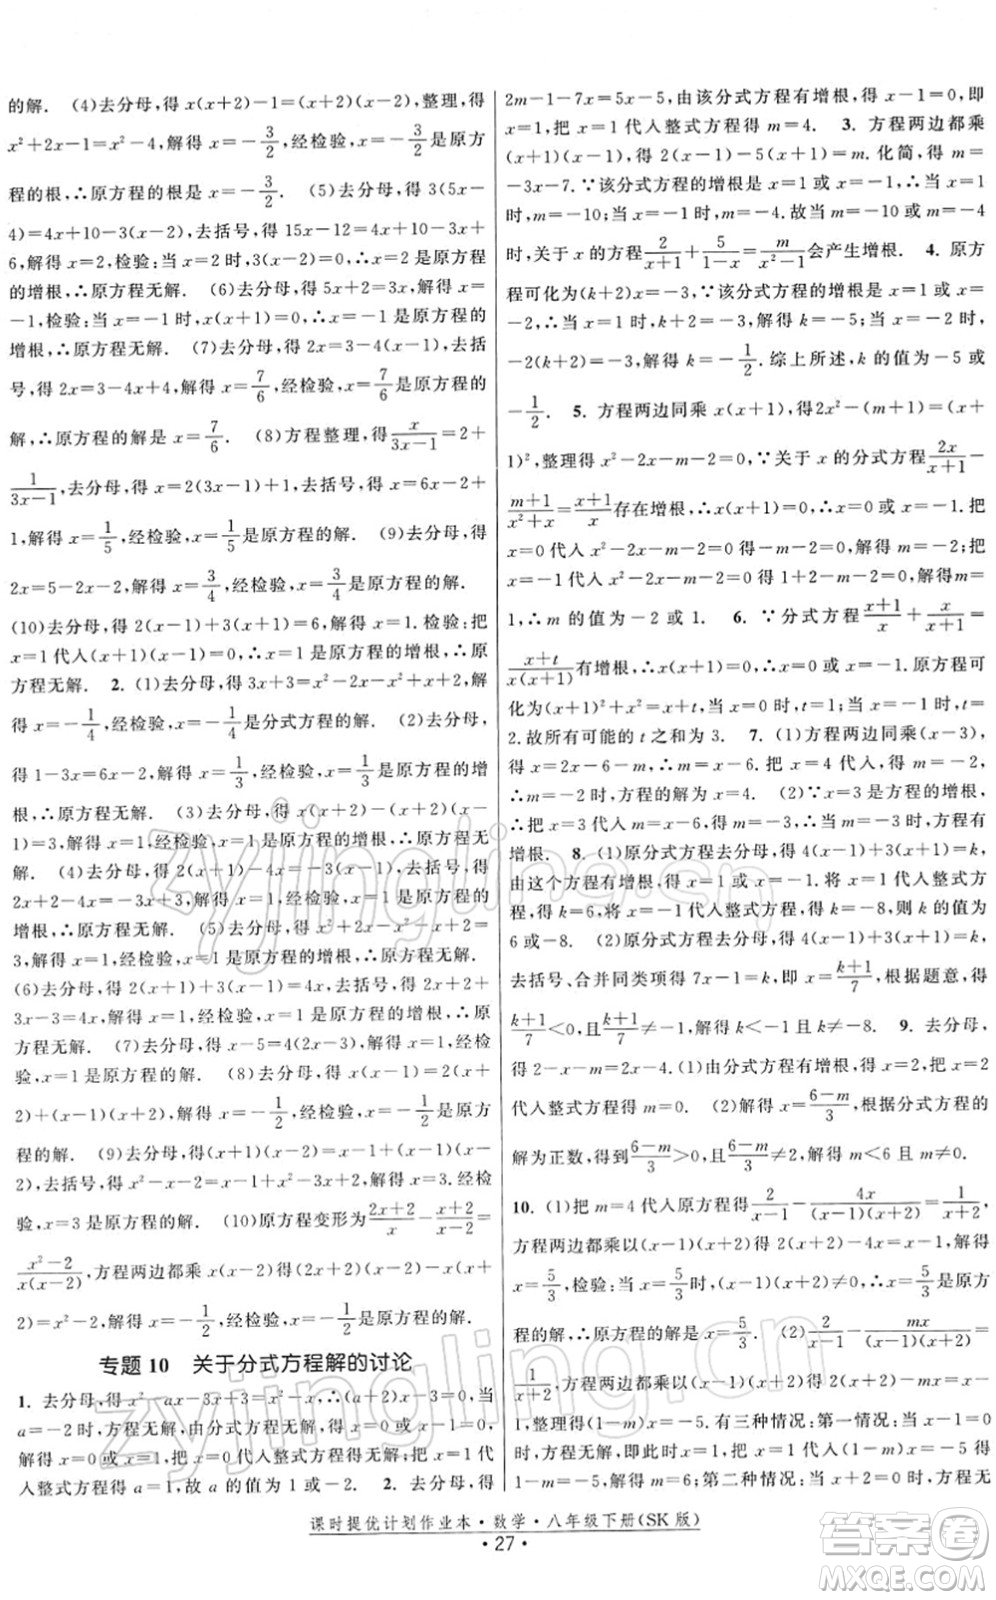 的解. (4)去分母,得 x(x+2)-1=(x+2)(x-2),整理,得
x²+2x-1=x²-4,解得 x=-3/2,经检验,x=-3/2是原方
程的根,∴原方程的根是 x=-3/2. (5)去分母,得 3(5x-
4)=4x+10-3(x-2),去括号,得 15x-12=4x+10-3x+
6,解得 x=2,检验:当 x=2 时,3(x-2)=0,∴x=2 是原方程
的增根,∴原方程无解. (6)去分母,得 5x+2=3x,解得 x=
-1,检验:当 x=-1 时,x(x+1)=0,∴x=-1 是原方程的
增根,∴原方程无解. (7)去分母,得 2x=3-4(x-1),去括
号,得 2x=3-4x+4,解得 x=7/6,经检验,x=7/6是原方程的
解,∴原方程的解是 x=7/6. (8)方程整理,得x/(3x-1)=2+
1/(3x-1),去分母,得 x=2(3x-1)+1,去括号,得 x=6x-2+
1,解得 x=1/5,经检验,x=1/5是原方程的解. (9)去分母,得
2x=5-2-2x,解得 x=3/4,经检验,x=3/4是原方程的解.
(10)去分母,得 2(x-1)+3(x+1)=6,解得 x=1,检验:把
x=1 代入(x+1)(x-1)=0,∴x=1 是原方程的增根,∴原
方程无解. 2. (1)去分母,得 3x+3=x²-x-x²+2x,解
得 x=-1/4,经检验,x=-1/4是分式方程的解. (2)去分母,
得 1-3x=6x-2,解得 x=1/3,经检验,x=1/3是原方程的增
根,∴原方程无解. (3)去分母,得 x(x+2)-(x+2)(x-
1)=3,解得 x=1,经检验,x=1 是原方程的增根,∴原方程无
解. (4)去分母,得 2(x+1)-4=-3(x-1),去括号,得
2x+2-4=-3x+3,解得 x=1,经检验,x=1 是原方程的增
根,∴原方程无解. (5)去分母,得 x²+2x-x²+4=8,解得
x=2,经检验,x=2 是原方程的增根,∴原方程无解.
(6)去分母,得 2(x+1)+3(x-1)=4,去括号,得 2x+2+
3x-3=4,解得 x=1,经检验,x=1 是原方程的增根,∴原
方程无解. (7)去分母,得 x-5=4(2x-3),解得 x=1,
经检验,x=1 是原方程的解. (8)去分母,得 x(x+
2)+(x-1)=x(x-2),解得 x=1/5,经检验,x=1/5是原方
程的解. (9)去分母,得(x+1)(x-2)-x+1=(x-2)(x-
1),去括号,得 x²-x-2-x+1=x²-3x+2,解得 x=3,经检
验,x=3 是原方程的解. (10)原方程变形为(2x+2)/x-(x+2)/(x-2)=
(x²-2)/(x(x-2)),方程两边都乘 x(x-2)得(2x+2)(x-2)-x(x+
2)=x²-2,解得 x=-1/2,经检验,x=-1/2是原方程的解.
专题 10 关于分式方程解的讨论
1. 去分母,得 x²-ax-3x+3=x²-x,∴(a+2)x-3=0,当
a=-2 时,方程无解,由分式方程无解,得 x=0 或 x-1=0,
解得 x=0 或 x=1,把 x=0 代入整式方程无解;把 x=1 代
入整式方程得 a=1,故 a 的值为 1 或-2. 2. 去分母,得
2m-1-7x=5x-5,由该分式方程有增根,得 x-1=0,即
x=1,把 x=1 代入整式方程得 m=4. 3. 方程两边都乘
(x+1)(x-1),得 2(x-1)-5(x+1)=m. 化简,得 m=
-3x-7.∵该分式方程的增根是 x=1 或 x=-1,∴当 x=1
时,m=-10;当 x=-1 时,m=-4.故当 m=-10 或 m=-4
时,关于 x 的方程2/(x+1)+5/(1-x)=m/(x²-1)会产生增根. 4. 原方
程可化为(k+2)x=-3,∵该分式方程的增根是 x=1 或 x=
-2,∴当 x=1 时,k+2=-3,解得 k=-5;当 x=-2 时,
-2(k+2)=-3,解得 k=-1/2.综上所述,k 的值为-5 或
-1/2. 5. 方程两边同乘 x(x+1),得2x²-(m+1)=(x+
1)²,整理得 x²-2x-m-2=0,∵关于 x 的分式方程2x/(x+1)-
(m+1)/(x²+x)=(x+1)/x存在增根,∴x(x+1)=0,∴x=0 或 x=-1.把
x=0 代入 x²-2x-m-2=0 得-m-2=0,解得 m=-2;把
x=-1 代入 x²-2x-m-2=0 得 1+2-m-2=0,解得m=
1,∴m 的值为-2 或 1. 6. ∵分式方程(x+1)/x+x/(x+1)=
(x+t)/(x(x+1))有增根,∴x(x+1)=0,∴x=0 或 x=-1. 原方程可
化为(x+1)²+x²=x+t,当 x=0 时,t=1,当 x=-1 时,t=
2.故所有可能的 t 之和为 3. 7. (1)方程两边同乘(x-3),
得 x=2x-6-m,解得 x=m+6,∴m+6=4,解得 m=-2,
∴当 m=-2 时,方程的解为 x=4. (2)∵x=3 是增根,
∴把 x=3 代入 x=m+6,得 m=-3,∴当 m=-3 时,方程有
增根. 8. (1)原分式方程去分母,得 4(x-1)+3(x+1)=k,
由这个方程有增根,得 x=1 或 x=-1.将 x=1 代入整式方
程,得 k=6,将 x=-1 代入整式方程,得 k=-8,则 k 的值为
6 或-8. (2)原分式方程去分母,得 4(x-1)+3(x+1)=k,
去括号、合并同类项得 7x-1=k,即 x=(k+1)/7,根据题意,得
(k+1)/7<0,且(k+1)/7≠-1,解得 k<-1 且 k≠-8. 9. 去分母,
得 2-x-m=2x-4. (1)由分式方程有增根,得 x=2,
代入整式方程得 m=0. (2)解得 x=(6-m)/3,根据分式方程的
解为正数,得到(6-m)/3>0,且(6-m)/3≠2,解得 m<6 且 m≠0.
10. (1)把 m=4 代入原方程得2/(x-1)-4x/((x-1)(x+2))=1/(x+2),
方程两边都乘以(x-1)(x+2)得 2(x+2)-4x=x-1,解得
x=5/3,检验:当 x=5/3时,(x-1)(x+2)≠0,∴x=5/3是原方
程的解,∴方程的解为 x=5/3. (2)∵2/(x-1)-mx/((x-1)(x+2))=
1/(x+2),方程两边都乘以(x-1)(x+2)得 2(x+2)-mx=x-
1,整理得(1-m)x=-5.有三种情况:第一种情况:当x-1=0
时,方程无解,即 x=1,把 x=1 代入(1-m)x=-5 得
1-m=-5,解得 m=6;第二种情况:当 x+2=0 时,方程无
课时提优计划作业本·数学·八年级下册(SK 版)
· 27 ·
zyjingling.cn
zyjingling.cn
答案圈
MXQE.COM